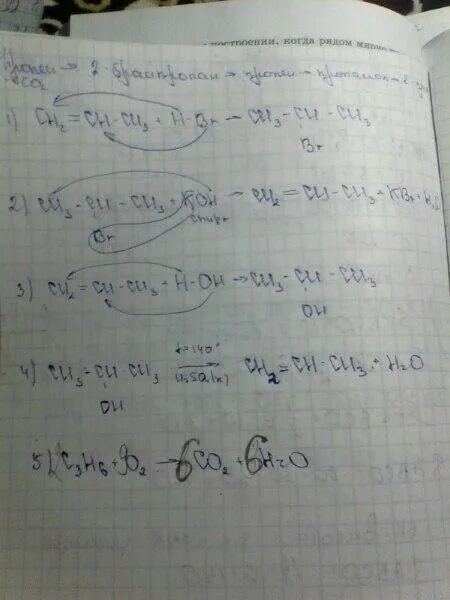 построении, когда рядом мирно
пропен → 2-бромпропан → пропен → пропанол →
CO2
1) CH2 = CH-CH3 + H-Br → CH3 - CH - CH3
Br
2) CH3 - CH - CH3 + KOH → CH2 = CH - CH3 + KBr + H2O
Br спирт
3) CH2 = CH - CH3 + H-OH → CH3 - CH - CH3
OH
4) CH3 - CH - CH3 t>140° H2SO4(к) → CH2 = CH - CH3 + H2O
OH
5) 2C3H6 + 9O2 → 6CO2 + 6H2O